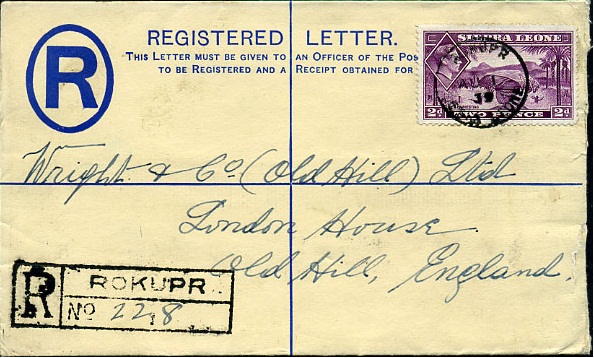 REGISTERED LETTER.
THIS LETTER MUST BE GIVEN TO AN OFFICER OF THE POS
TO BE REGISTERED AND A RECEIPT OBTAINED FOR
R
SIERRA LEONE
ROKUPR
39
2d TWO PENCE 2d
Wright & Co. (Old Hill) Ltd
London House.
Old Hill, England.
R ROKUPR
No 228